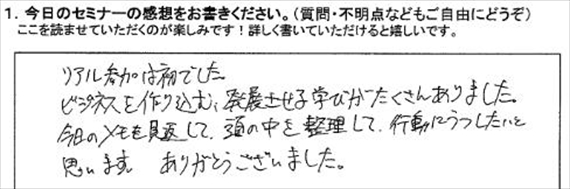 1. 今日のセミナーの感想をお書きください。(質問・不明点などもご自由にどうぞ)
ここを読ませていただくのが楽しみです！詳しく書いていただけると嬉しいです。
リアル参加は初でした。
ビジネスを作り込む、発展させる学びがたくさんありました。
今日のメモを見返して、頭の中を整理して、行動にうつしたいと
思います。ありがとうございました。